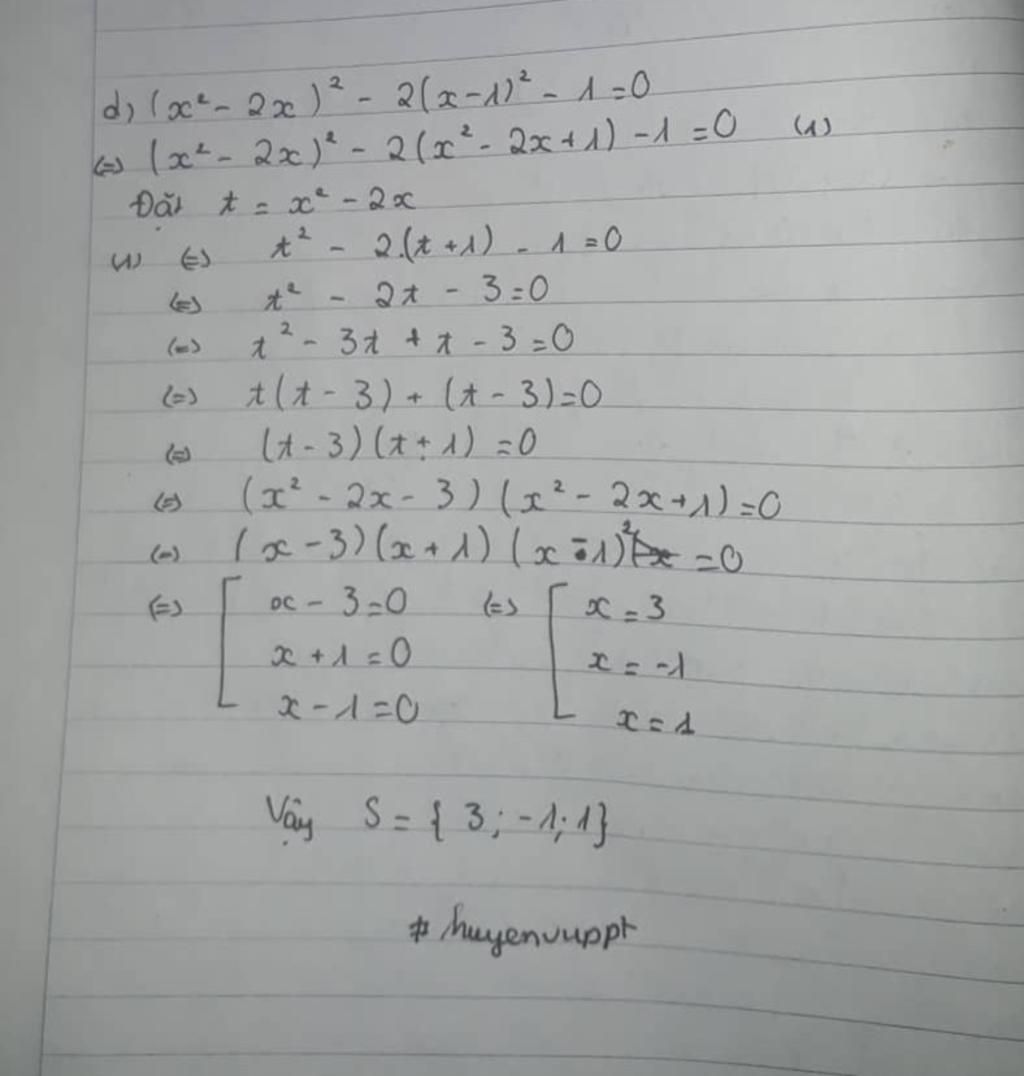 d) (x² - 2x)² - 2(x-1)² - 1=0
(=) (x² - 2x)² - 2(x² - 2x+1) -1 =0 (1)
Đặt t = x² - 2x
(1) (=) t² - 2.(t+1) - 1 =0
(=) t² - 2t - 3=0
(=) t² - 3t + t - 3 =0
(=) t(t - 3) + (t - 3)=0
(=) (t - 3)(t + 1) =0
(=) (x² - 2x - 3)(x² - 2x+1)=0
(=) (x - 3)(x + 1)(x - 1)² =0
(=) [ x - 3=0 (=) [ x = 3
x + 1 =0 x = -1
x - 1 =0 x = 1
Vậy S = { 3; -1; 1}
# huyenvuppt